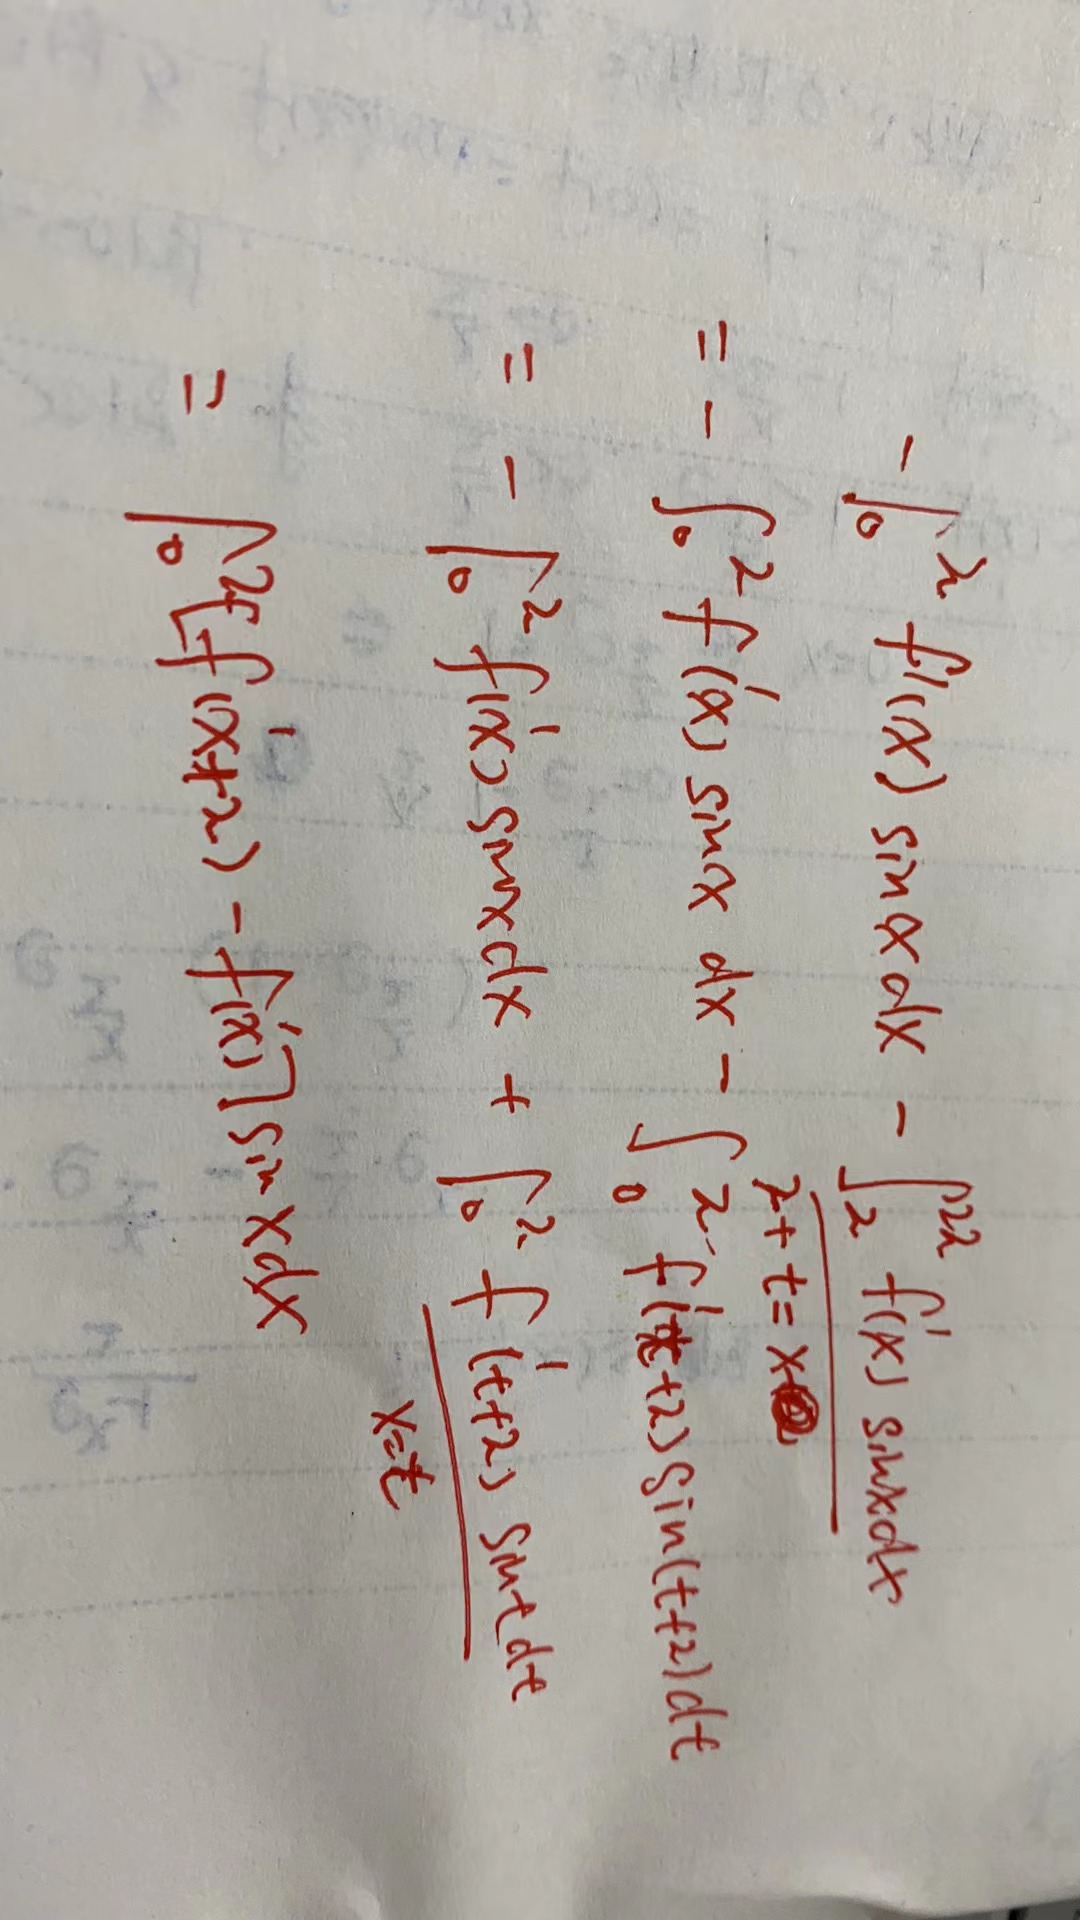 - ∫₀² f'(x) sin x dx - ∫₂²² f'(x) sin x dx
2+t=x
= - ∫₀² f'(x) sin x dx - ∫₀² f'(t+2) sin(t+2) dt
= - ∫₀² f'(x) sin x dx + ∫₀² f'(t+2) sin t dt
x=t
= ∫₀² [f'(x+2) - f'(x)] sin x dx